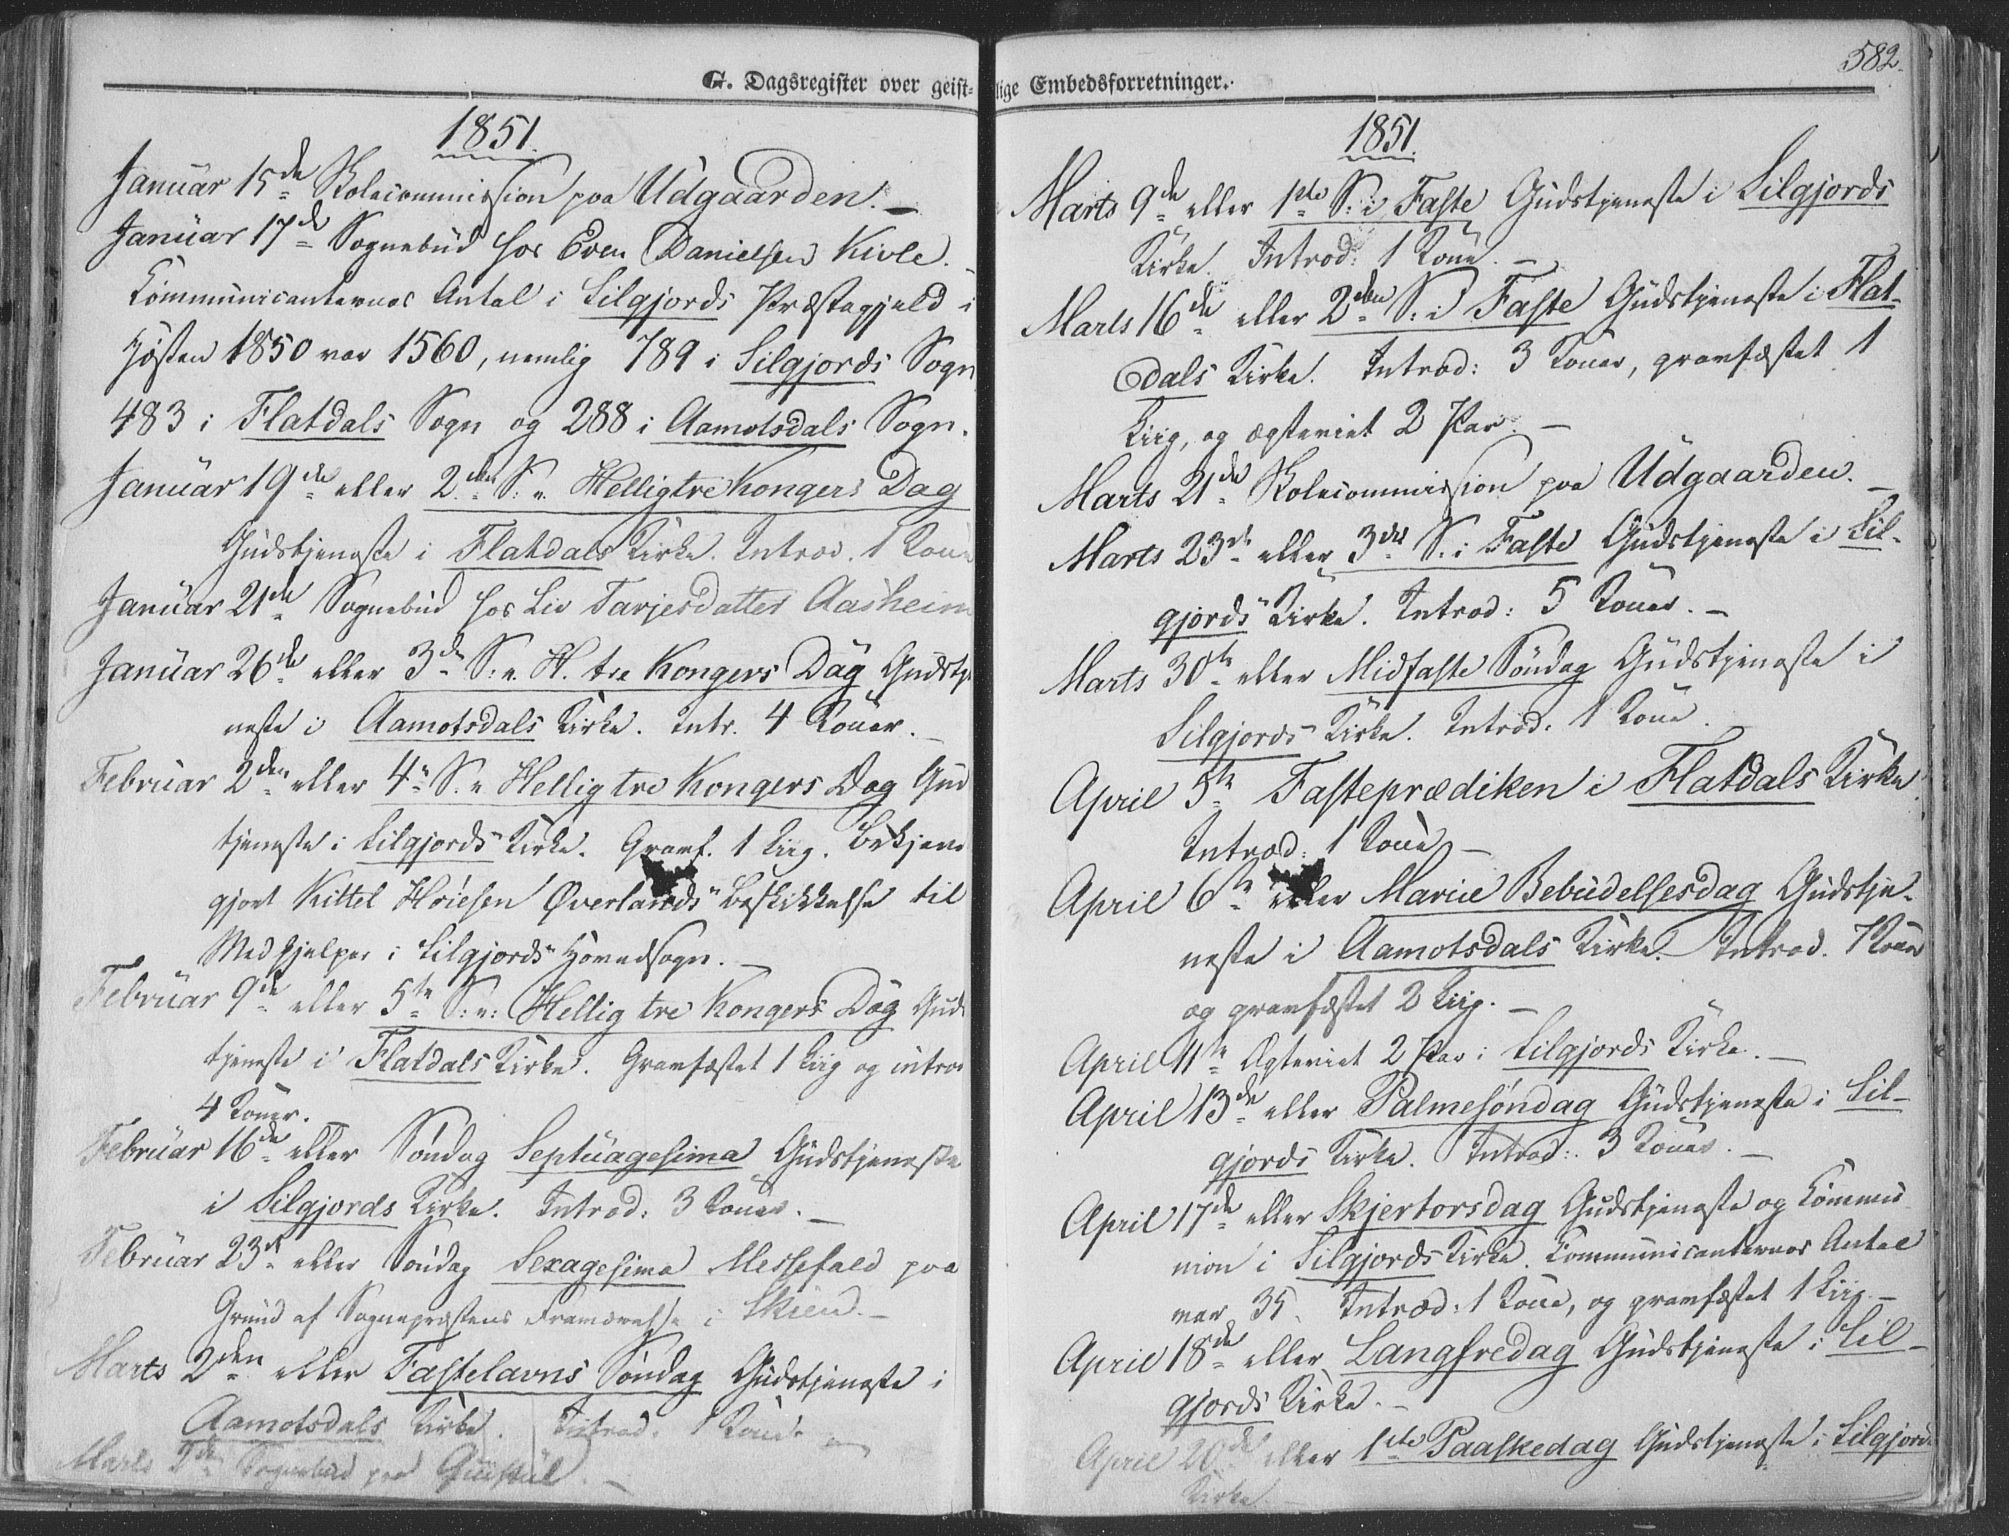 G. Dagsregister over geist-
1851.
Januar 15de Skolecommission paa Udgaarden. —
Januar 17de Sognebud hos Even Danielsen Kivle. —
Communicanternes Antal i Silgjords Præstegjeld i
Høsten 1850 var 1560, nemlig 789 i Silgjords Sogn
483 i Flatdals Sogn og 288 i Aamotsdals Sogn.
Januar 19de eller 2den S. e. Helligtrekongers Dag
Gudstjeneste i Flatdals Kirke. Introd. 1 Kone
Januar 21de Sognebud hos Liv Tarjesdatter Aasheim
Januar 26de eller 3de S. e. H. tre Kongers Dag Gudstje
neste i Aamotsdals Kirke. Intr. 4 Koner. —
Februar 2den eller 4de S. e Hellig tre Kongers Dag Gud
tjeneste i Silgjords Kirke. Gravf. 1 Liig. Bekjend
gjort Kittel Høiesen Øverlands Beskikkelse til
Medhjelper i Silgjords Hovedsogn. —
Februar 9de eller 5te S. e. Hellig tre Kongers Dag Guds
tjeneste i Flatdals Kirke. Gravfæstet 1 Liig og introd
4 Koner. —
Februar 16de eller Søndag Septuagesima Gudstjeneste
i Silgjords Kirke. Introd: 3 Koner. —
Februar 23de eller Søndag Sexagesima Messefald paa
Grund af Sognepræstens Fraværelse i Skien. —
Marts 2den eller Fastelavns Søndag Gudstjeneste i
Aamotsdals Kirke. Introd. 1 Kone. —
Marts Sognebud paa —
582.
lige Embedsforretninger.
1851.
Marts 9de eller 1ste S: i Faste Gudstjeneste i Silgjords
Kirke. Introd: 1 Kone. —
Marts 16de eller 2den S: i Faste Gudstjeneste i Flat-
dals Kirke. Introd: 3 Koner, gravfæstet 1
Liig, og ægteviet 2 Par. —
Marts 21de Skolecommission paa Udgaarden. —
Marts 23de eller 3die S. i Faste Gudstjeneste i Sil-
gjords Kirke. Introd: 5 Koner. —
Marts 30te eller Midfaste Søndag Gudstjeneste i
Silgjords Kirke. Introd: 1 Kone.
April 5te Fasteprædiken i Flatdals Kirke.
Introd: 1 Kone —
April 6te eller Mariæ Bebudelsesdag Gudstje-
neste i Aamotsdals Kirke. Introd. 7 Koner
og gravfæstet 2 Liig. —
April 11te Ægteviet 2 Par i Silgjords Kirke. —
April 13de eller Palmesøndag Gudstjeneste i Sil-
gjords Kirke. Introd: 3 Koner. —
April 17de eller Skjertorsdag Gudstjeneste og Commu
nion i Silgjords Kirke. Communicanternes Antal
var 35. Introd: 1 Kone, og gravfæstet 1 Liig. —
April 18de eller Langfredag Gudstjeneste i Sil-
gjords Kirke. —
April 20de eller 1ste Paaskedag Gudstjeneste i Silgjords
Kirke. —